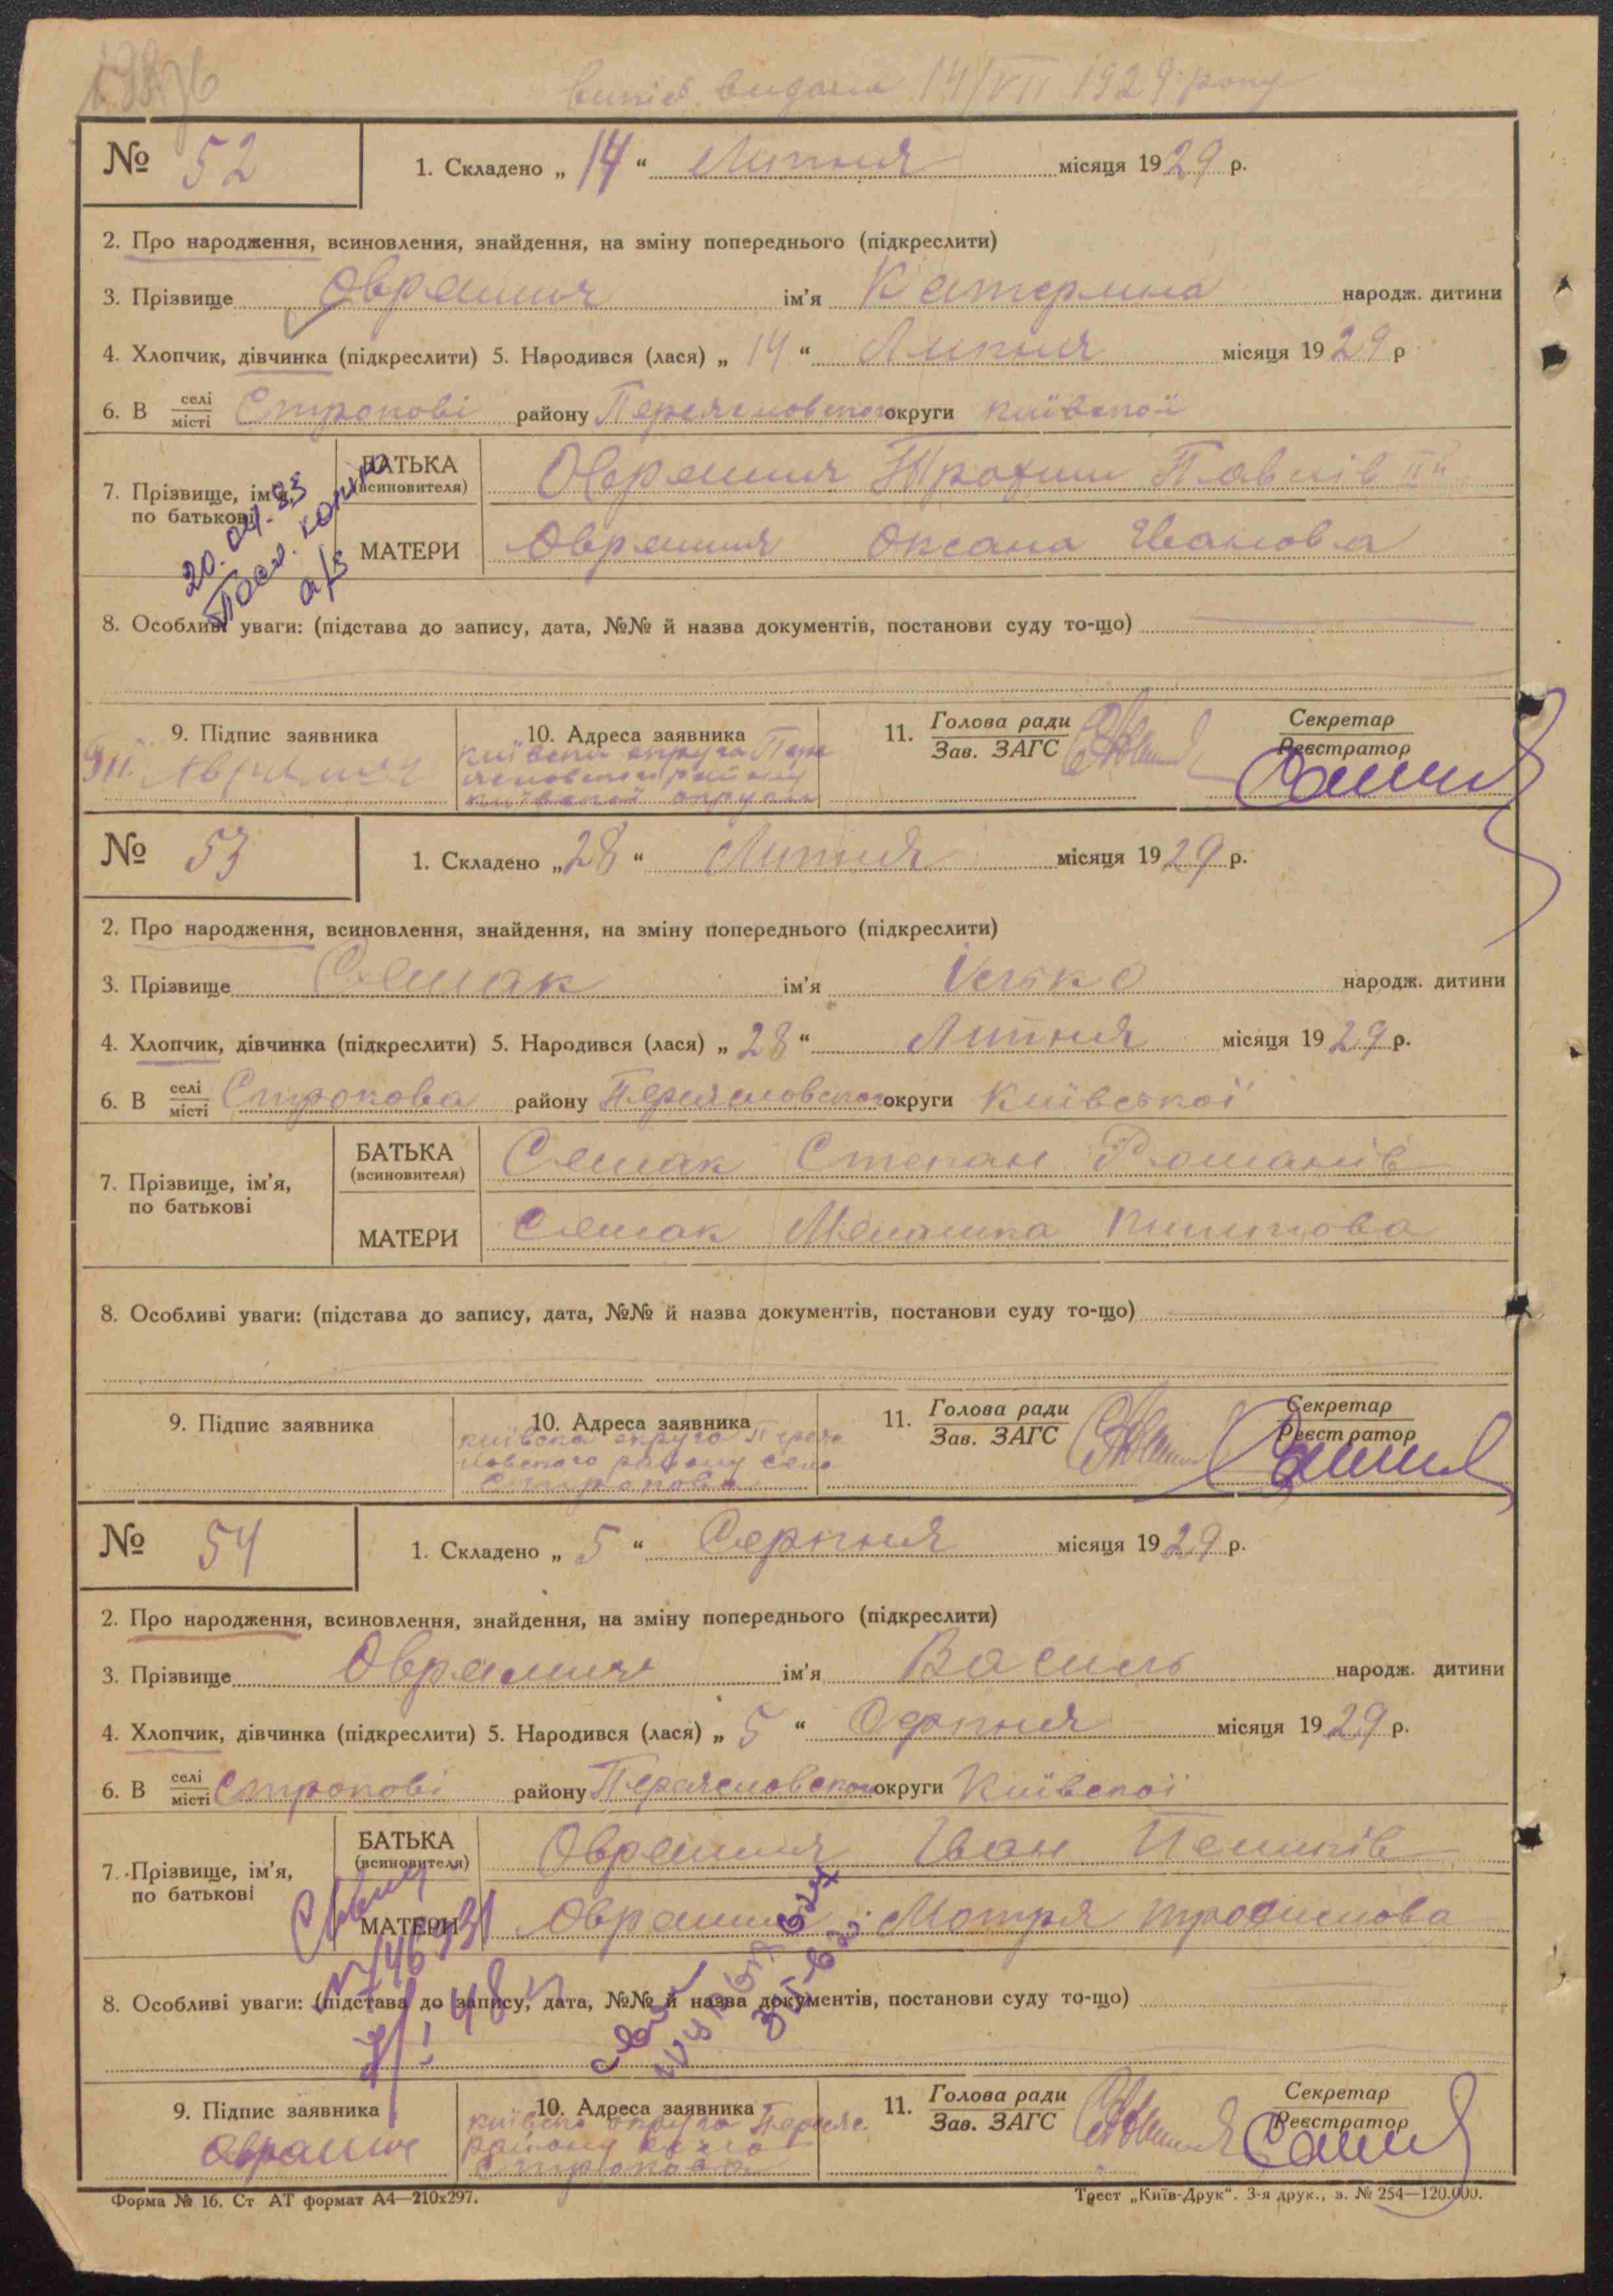 випис видана 14/VII 1929 року
№ 52
1. Складено „ 14 “ Липня місяця 1929 р.
2. Про народження, всиновлення, знайдення, на зміну попереднього (підкреслити)
3. Прізвище Овраммя ім'я Катерина народж. дитини
4. Хлопчик, дівчинка (підкреслити) 5. Народився (лася) „ 14 “ Липня місяця 1929 р
6. В селі місті Строкові району Переясловского округи київскої
7. Прізвище, ім'я, по батькові
БАТЬКА (всиновителя) Овраммя Трохим Павлів
МАТЕРИ Овраммя Оксана Іванова
20. 04. 83
8. Особливі уваги: (підстава до запису, дата, №№ й назва документів, постанови суду то-що)
9. Підпис заявника
10. Адреса заявника
київска округа Пере
ясловского району
київскої округи
11. Голова ради
Зав. ЗАГС
Секретар
Реєстратор
№ 53
1. Складено „ 28 “ Липня місяця 1929 р.
2. Про народження, всиновлення, знайдення, на зміну попереднього (підкреслити)
3. Прізвище Семак ім'я народж. дитини
4. Хлопчик, дівчинка (підкреслити) 5. Народився (лася) „ 28 “ Липня місяця 1929 р.
6. В селі місті Строкова району Переясловского округи Київської
7. Прізвище, ім'я, по батькові
БАТЬКА (всиновителя) Семак Степан Романів
МАТЕРИ Семак Меланка
8. Особливі уваги: (підстава до запису, дата, №№ й назва документів, постанови суду то-що)
9. Підпис заявника
10. Адреса заявника
київска округа Перея
словского району село
Строкова
11. Голова ради
Зав. ЗАГС
Секретар
Реєстратор
№ 54
1. Складено „ 5 “ Серпня місяця 1929 р.
2. Про народження, всиновлення, знайдення, на зміну попереднього (підкреслити)
3. Прізвище Овраммя ім'я Василь народж. дитини
4. Хлопчик, дівчинка (підкреслити) 5. Народився (лася) „ 5 “ Серпня місяця 1929 р.
6. В селі місті Строкові району Переясловского округи Київскої
7. Прізвище, ім'я, по батькові
БАТЬКА (всиновителя) Овраммя Іван
МАТЕРИ Овраммя Мотря Трофимова
8. Особливі уваги: (підстава до запису, дата, №№ й назва документів, постанови суду то-що)
9. Підпис заявника
10. Адреса заявника
київска округа Переяс.
району село
Строкова
11. Голова ради
Зав. ЗАГС
Секретар
Реєстратор
Форма № 16. Ст АТ формат А4—210х297.
Трест „Київ-Друк“. 3-я друк., з. № 254—120.000.